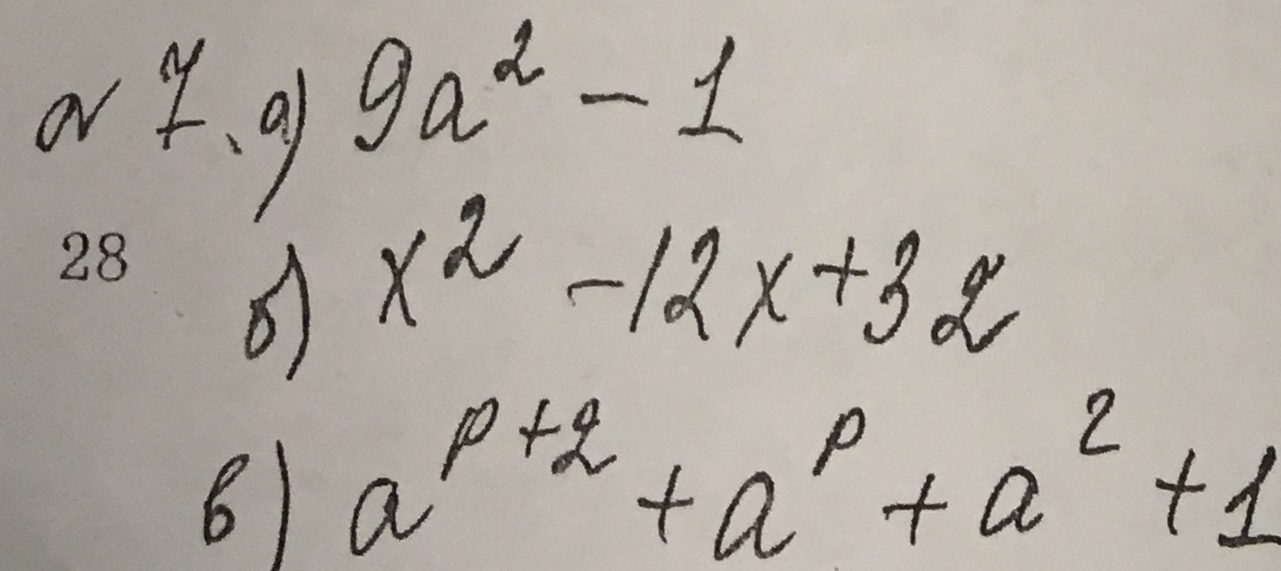 № 7. а) 9a² − 1
28
б) x² − 12x + 32
в) a^{p+2} + a^p + a² + 1